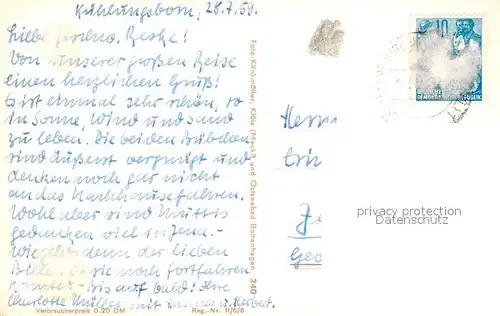 Kühlungsborn, 28.7.59.
Liebe
Von unserer großen Reise
einen herzlichen Gruß!
Es ist einmal sehr schön, so
in Sonne, Wind und Sand
zu leben. Die beiden Bübchen
sind äußerst vergnügt und
denken noch gar nicht
an das Nachhausefahren.
Wohl aber sind Muttis
Gedanken viel in Jena.-
Wie geht denn der lieben
sie noch fortfahren
- Bis auf bald! Ihre
Charlotte Müller mit u. Herbert.
Verbraucherpreis 0.20 DM
Reg.-Nr. II/6/6
und Ostseebad Boltenhagen 240
10
DEMOKRATISCHE REPUBLIK
Herrn
privacy protection
Datenschutz